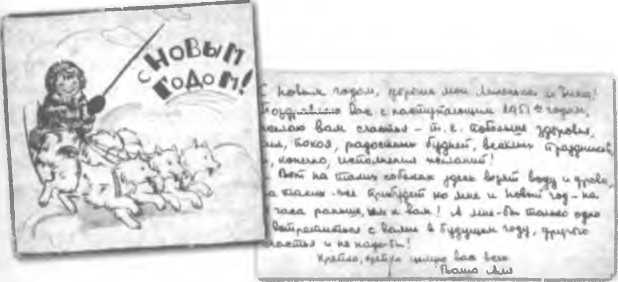 С НОВЫМ ГОДОМ!
С новым годом, дорогие мои Лиленька и Зина!
Поздравляю Вас с наступающим 1951-м годом,
желаю вам счастья – т. е. побольше здоровья,
покоя, радостных будней, веселых праздников,
конечно, исполнения желаний!
Вот на таких собаках здесь возят воду и дрова,
на таких-же прибудет ко мне и Новый год – на
часа раньше, чем к вам! А мне-бы только одно
встретиться с вами в будущем году, другого
счастья и не надо-бы!
Крепко, крепко целую вас всех
Ваша Аля